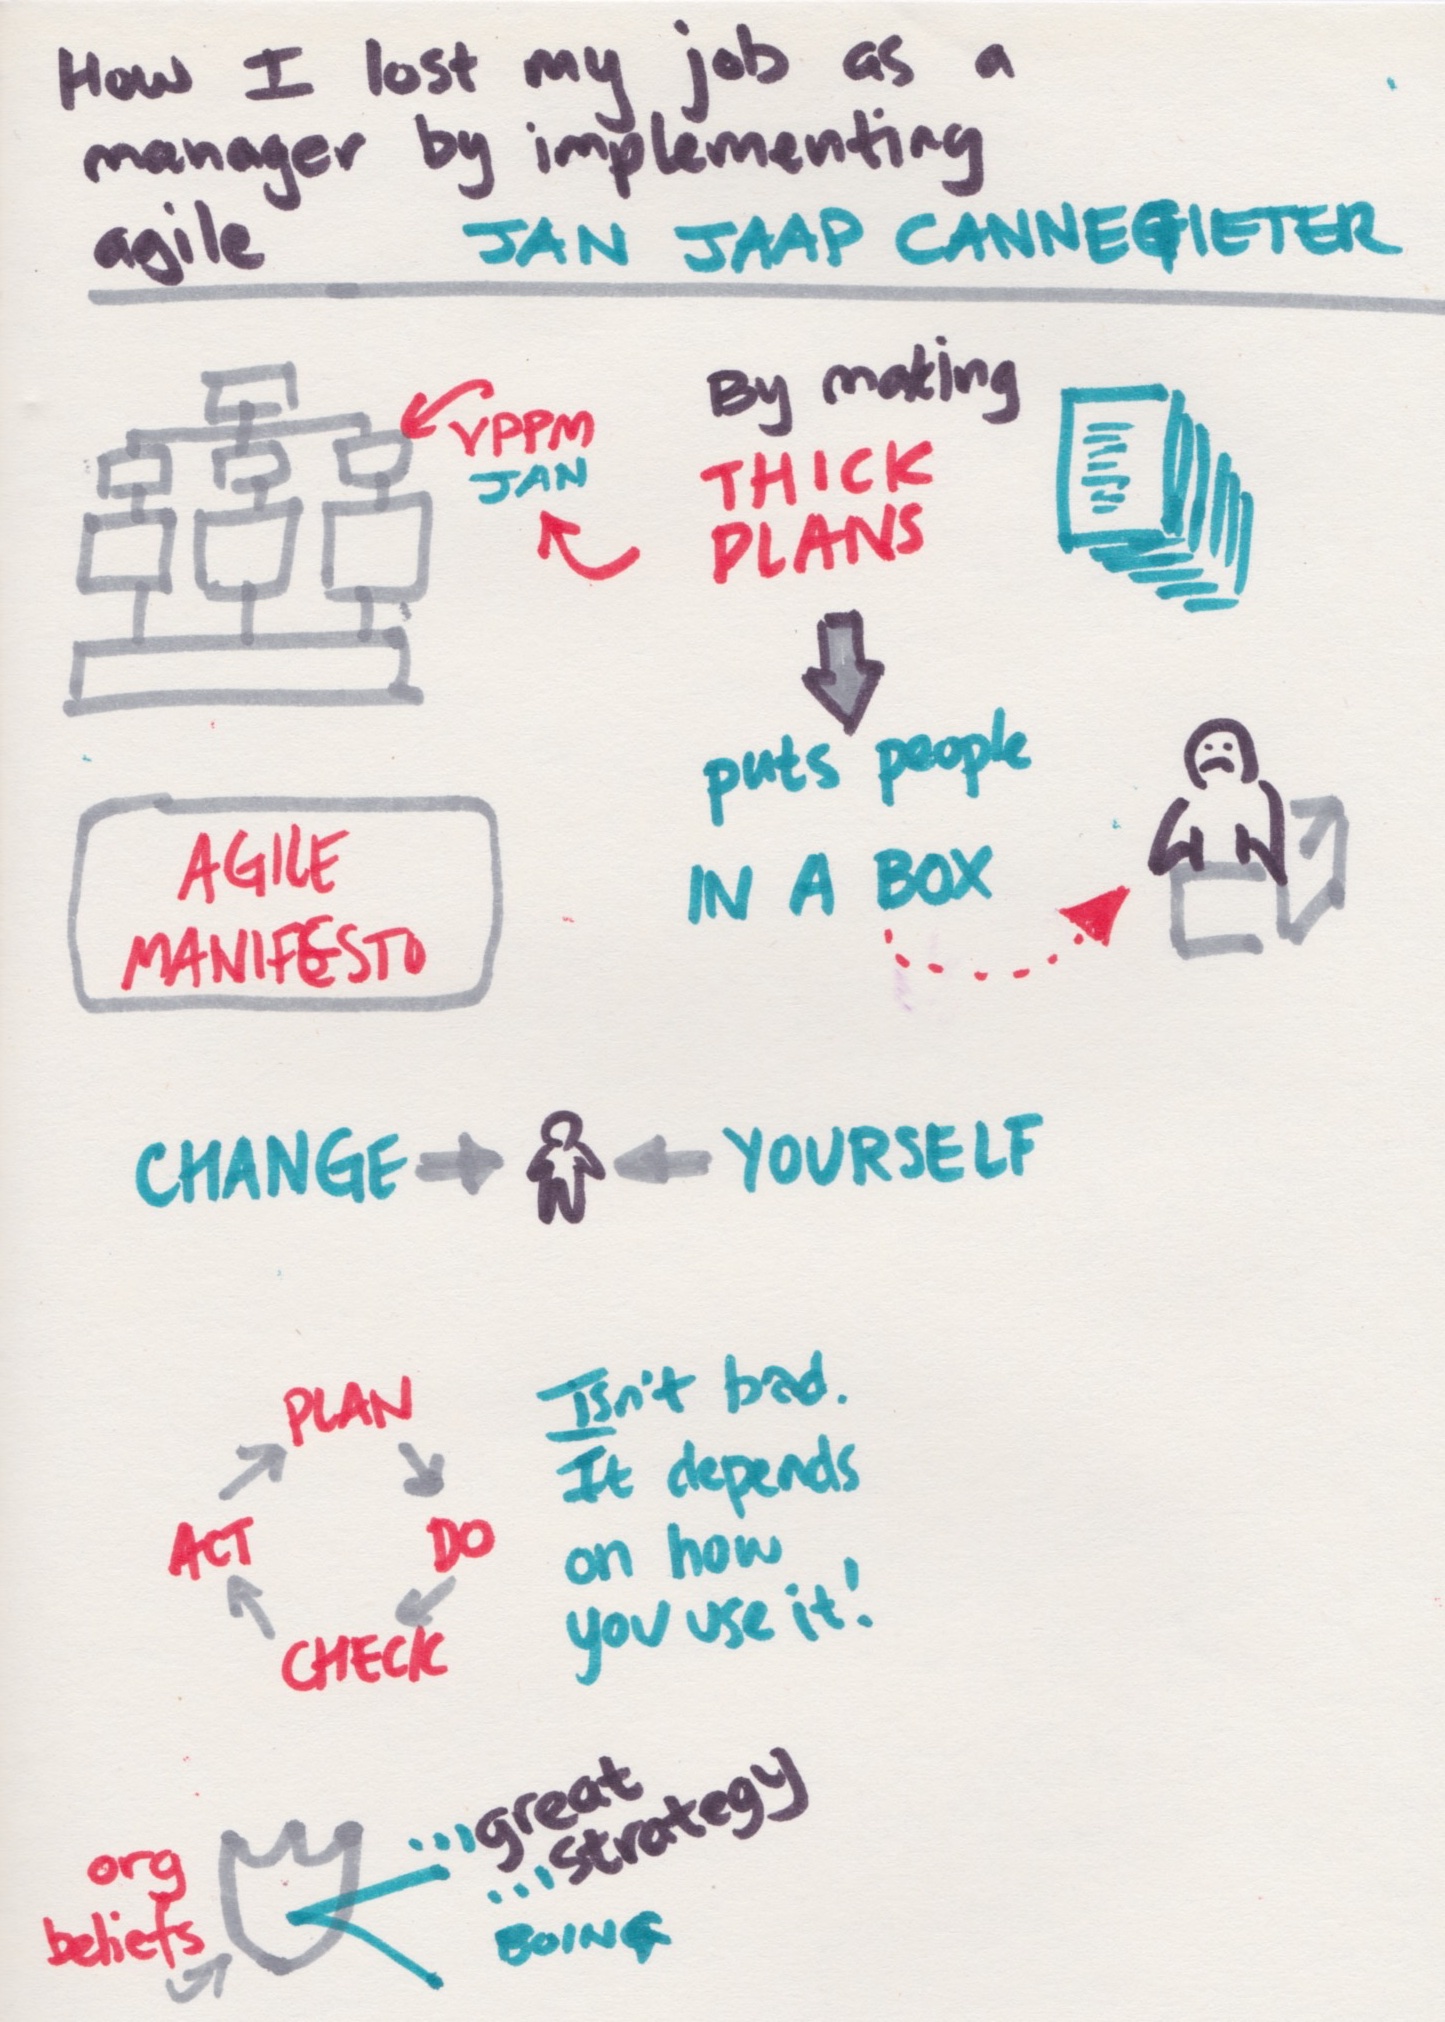 How I lost my job as a
manager by implementing
agile
JAN JAAP CANNEGIETER
VPPM
JAN
By making
THICK
PLANS
puts people
IN A BOX
AGILE
MANIFESTO
CHANGE
YOURSELF
PLAN
DO
CHECK
ACT
Isn't bad.
It depends
on how
you use it!
org
beliefs
...great
...strategy
BOING